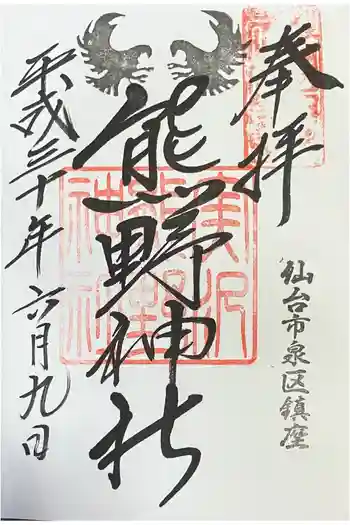 奉拝
仙台市泉区鎮座
熊野神社
平成三十年六月九日